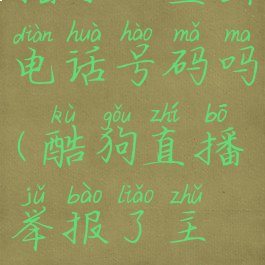 diàn huà hào mǎ ma
电话号码吗
kù gǒu zhí bō
(酷狗直播
jǔ bào liǎo zhǔ
举报了主